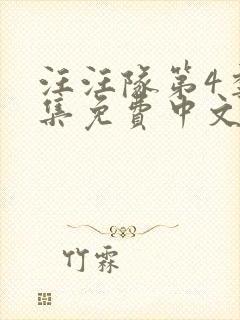 汪汪隊第4季
集免費中文
竹霖